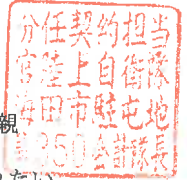 分任契約担当
官陸上自衛隊
海田市駐屯地
親
350会計隊長